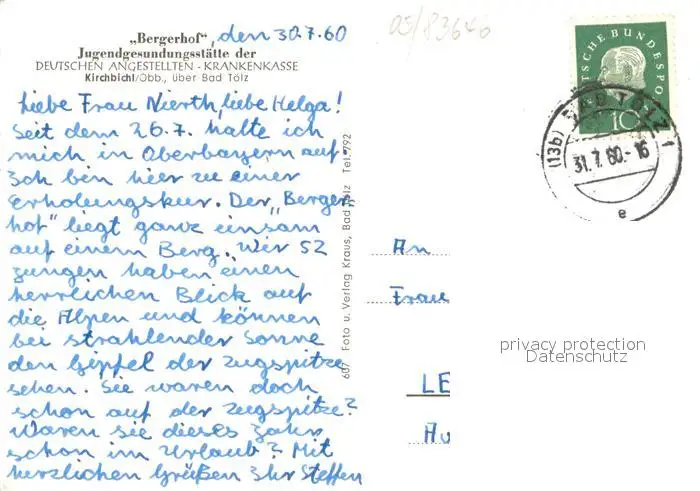 „Bergerhof“, den 30.7.60
Jugendgesundungsstätte der
DEUTSCHEN ANGESTELLTEN - KRANKENKASSE
Kirchbichl/Obb., über Bad Tölz
Liebe Frau Nierth, liebe Helga!
Seit dem 26.7. halte ich
mich in Oberbayern auf.
Ich bin hier zu einer
Erholungskur. Der „Berger-
hof“ liegt ganz einsam
auf einem Berg. Wir 52
Jungen haben einen
herrlichen Blick auf
die Alpen und können
bei strahlender Sonne
den Gipfel der Zugspitze
sehen. Sie waren doch
schon auf der Zugspitze?
Waren sie dieses Jahr
schon im Urlaub? Mit
herzlichen Grüßen Ihr Steffen
607 Foto u. Verlag Kraus, Bad Tölz Tel. 792
05/83646
DEUTSCHE BUNDESPOST
10
(13b) BAD TÖLZ 1
31.7.60.-16
e
An
Frau
LE
privacy protection
Datenschutz